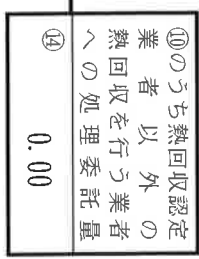 ⑩のうち熱回収認定
業者以外の
熱回収を行う業者
への処理委託量
⑭
0.00